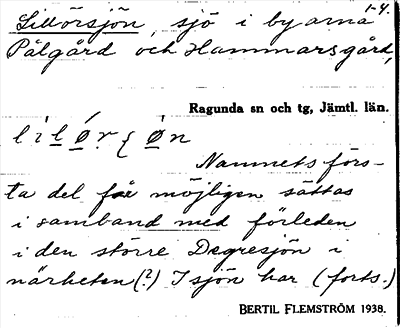 1-4.
Lillörsjön, sjö i byarna
Pålgård och Hammarsgård,
Ragunda sn och tg, Jämtl. län.
Namnets förs-
ta del får möjligen sättas
i samband med förleden
i den större Degresjön i
närheten (?) I sjön har (forts.)
BERTIL FLEMSTRÖM 1938.